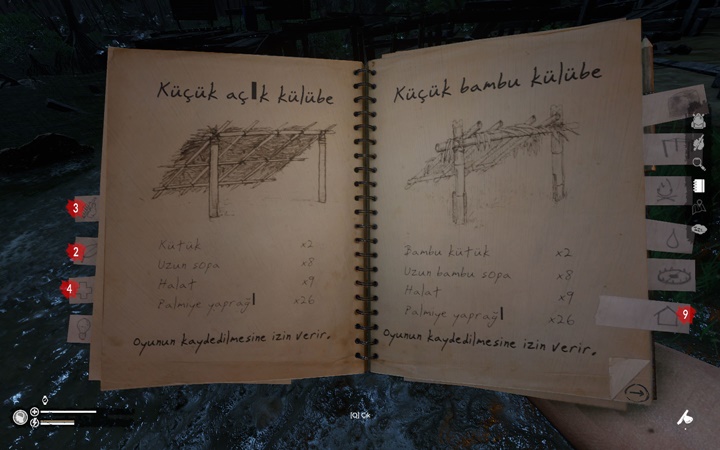 Küçük açık külübe
Kütük x2
Uzun sopa x8
Halat x9
Palmiye yaprağı x26
Oyunun kaydedilmesine izin verir.
Küçük bambu külübe
Bambu kütük x2
Uzun bambu sopa x8
Halat x9
Palmiye yaprağı x26
Oyunun kaydedilmesine izin verir.
3
2
4
9